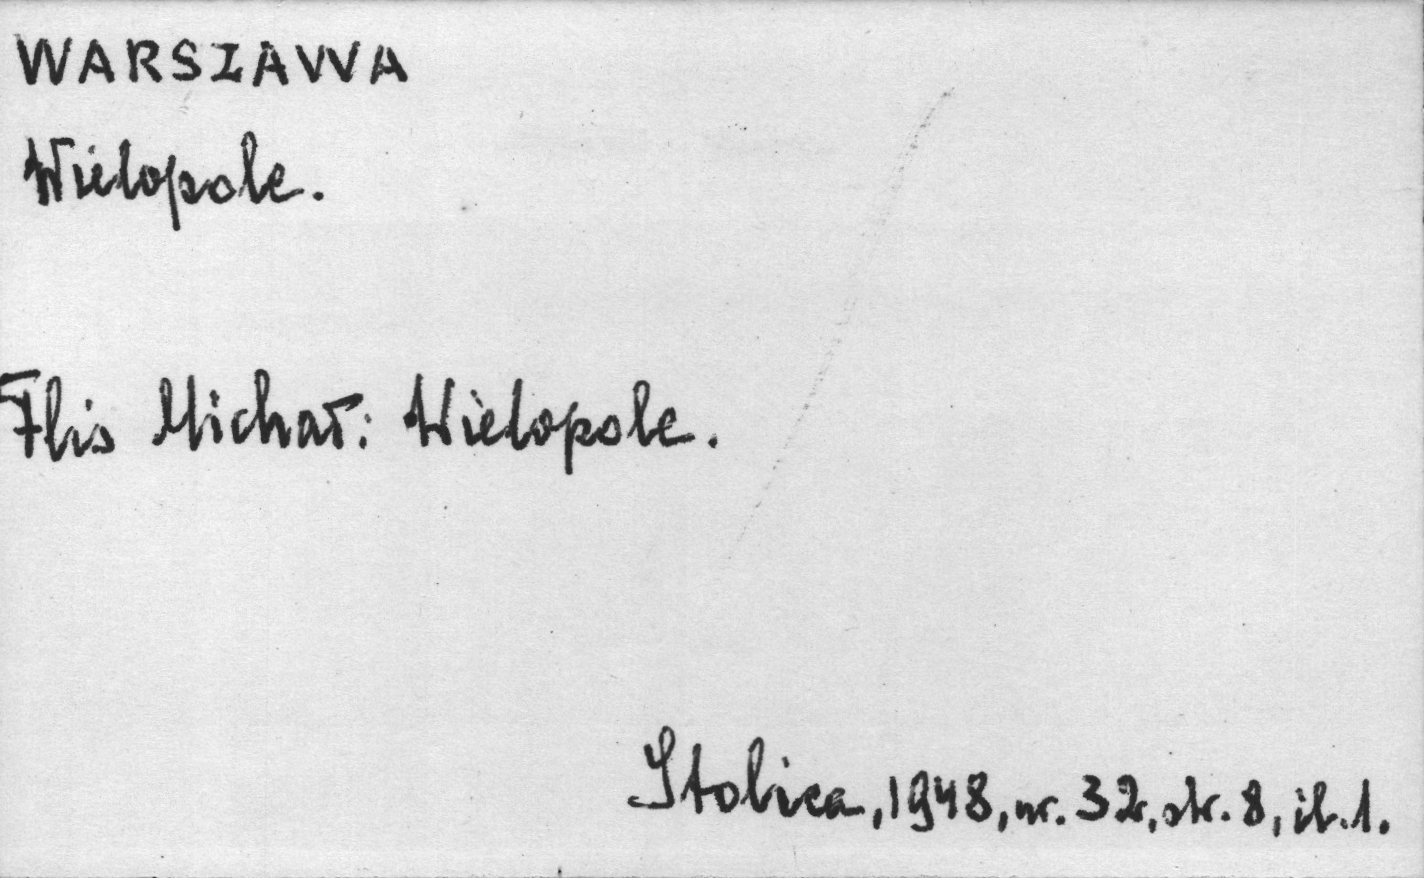 WARSZAWA
Wielopole.
Flis Michał: Wielopole.
Stolica, 1948, nr. 32, str. 8, il. 1.